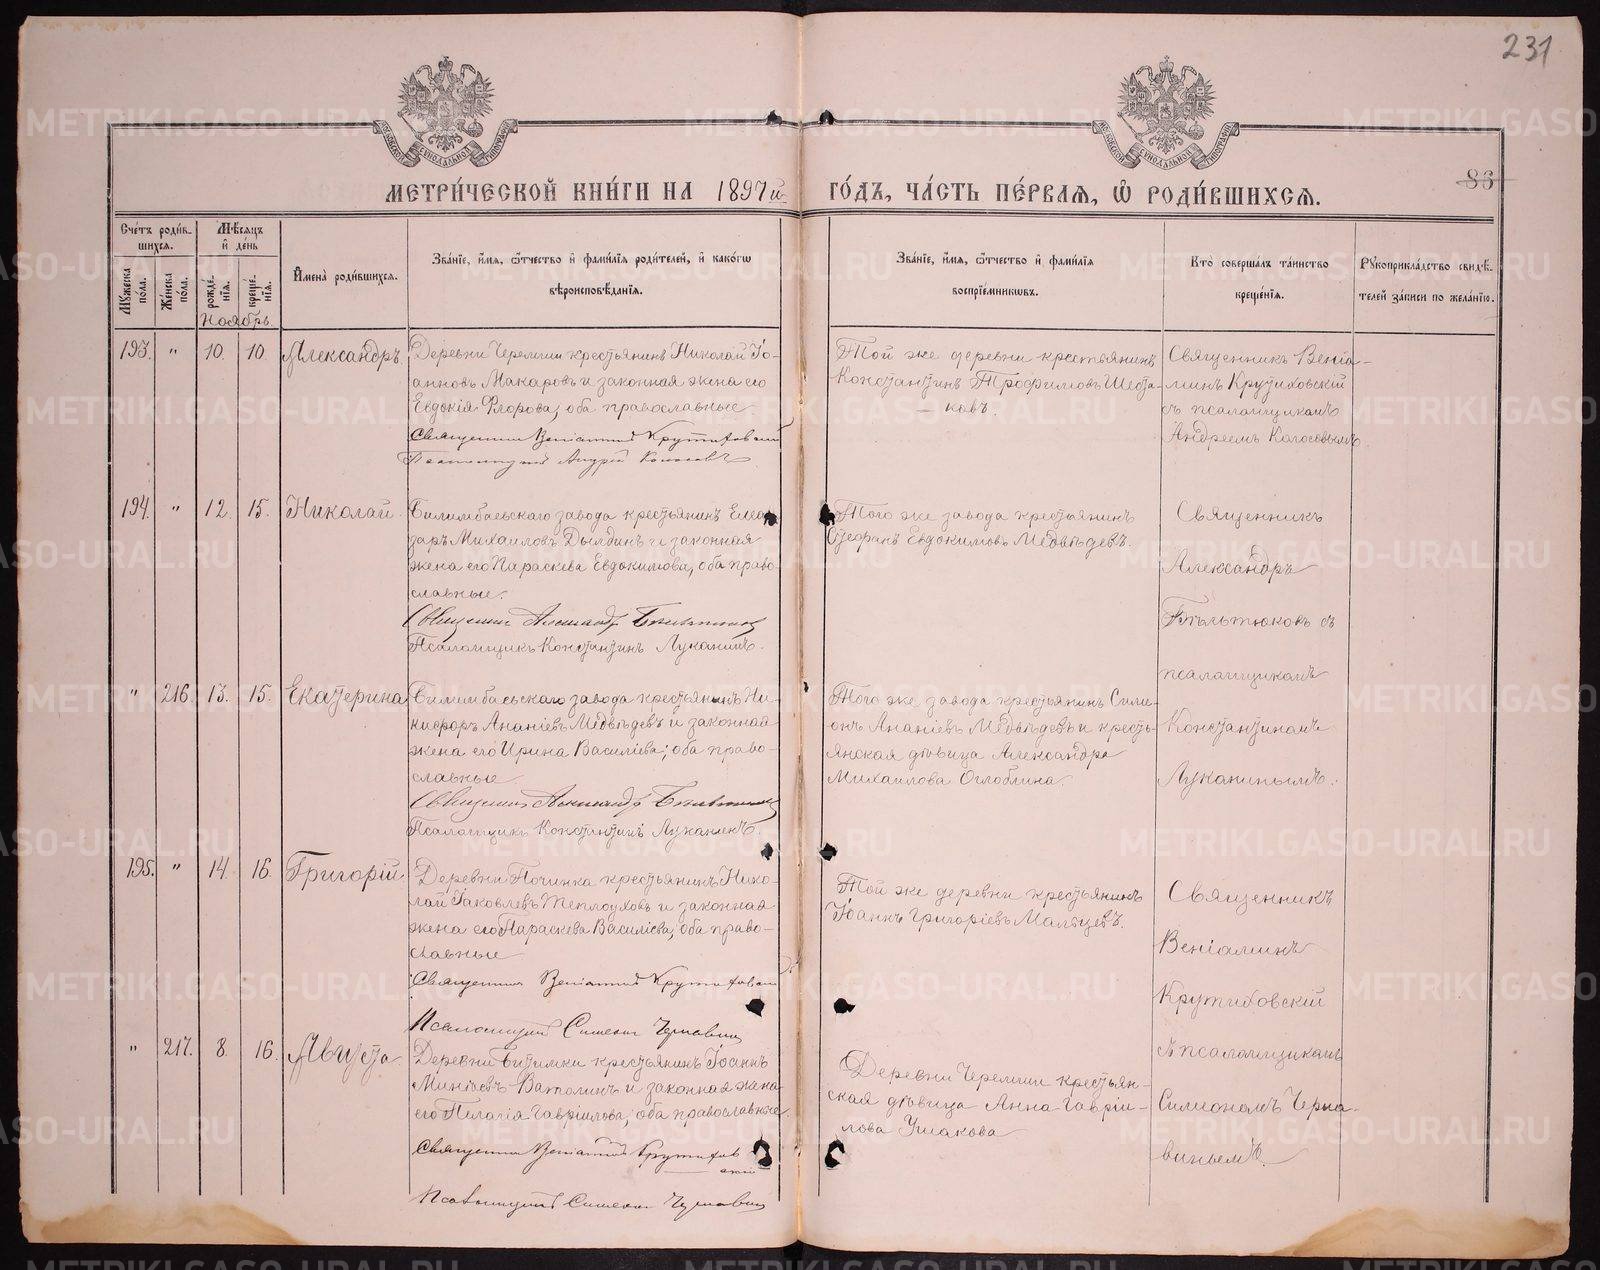 231
МОСКОВСКОЙ СѴНОДАЛЬНОЙ ТИПОГРАФІИ
МОСКОВСКОЙ СѴНОДАЛЬНОЙ ТИПОГРАФІИ
МЕТРИ́ЧЕСКОЙ КНИ́ГИ НА 1897 й ГО́ДЪ, ЧА́СТЬ ПЕ́РВАѦ, Ѡ҆ РОДИ́ВШИХСѦ.
86
Сче́тъ роди́в-
шихся.
Мѣ́сяцъ
и҆ де́нь
Мꙋ́жеска
по́ла.
Же́нска
по́ла.
рожде́-
нїя.
креще́-
нїя.
Ноябрь.
И҆мена̀ роди́вшихся.
Зва́нїе, и҆́мя, ѻ҆́тчество и҆ фами́лїя роди́телей, и҆ како́гѡ
вѣроисповѣ́данїя.
Зва́нїе, и҆́мя, ѻ҆́тчество и҆ фами́лїя
воспрїе́мниковъ.
Кто̀ соверша́лъ та́инство
креще́нїя.
Рꙋкоприкла́дство свидѣ́-
телей за́писи по жела́нїю.
193. " 10. 10. Александръ
Деревни Черемши крестьянинъ Николай Іо-
анновъ Макаровъ и законная жена его
Евдокія Флорова, оба православные.
Священникъ Веніаминъ Крутиховскій
Псаломщикъ Андрей Колосовъ
Той же деревни крестьянинъ
Константинъ Трофимовъ Шеста-
ковъ.
Священникъ Веніа-
минъ Крутиховскій
съ псаломщикомъ
Андреемъ Колосовымъ.
194. " 12. 15. Николай
Билимбаевскаго завода крестьянинъ Елеа-
заръ Михаиловъ Дылдинъ и законная
жена его Параскева Евдокимова, оба право-
славные.
Священникъ Александръ
Псаломщикъ Константинъ Луканинъ.
Того же завода крестьянинъ
Стефанъ Евдокимовъ Медвѣдевъ.
Священникъ
Александръ
съ
псаломщикомъ
Константиномъ
Луканинымъ.
" 216. 13. 15. Екатерина
Билимбаевскаго завода крестьянинъ Ни-
кифоръ Ананіевъ Медвѣдевъ и законная
жена его Ирина Василіева; оба право-
славные
Священникъ Александръ
Псаломщикъ Константинъ Луканинъ
Того же завода крестьянинъ Сими-
онъ Ананіевъ Медвѣдевъ и кресть-
янская дѣвица Александра
Михаилова Оглоблина.
195. " 14. 16. Григорій
Деревни Починка крестьянинъ Нико-
лай Іаковлевъ Теплоуховъ и законная
жена его Параскева Василіева, оба право-
славные
Священникъ Веніаминъ Крутиховскій
Псаломщикъ Симеонъ Чернавинъ
Той же деревни крестьянинъ
Іоаннъ Григоріевъ Мальцевъ.
Священникъ
Веніаминъ
Крутиховскій
съ псаломщикомъ
Симеономъ Черна-
винымъ.
" 217. 8. 16. Августа
Деревни Битимки крестьянинъ Іоаннъ
Минѣевъ Ватолинъ и законная жена
его Пелагія Гавріилова, оба православные
Священникъ Веніаминъ Крутихов
скій
Псаломщикъ Симеонъ Чернавинъ
Деревни Черемши крестьян-
ская дѣвица Анна Гавріи-
лова Ушакова
METRIKI.GASO-URAL.RU